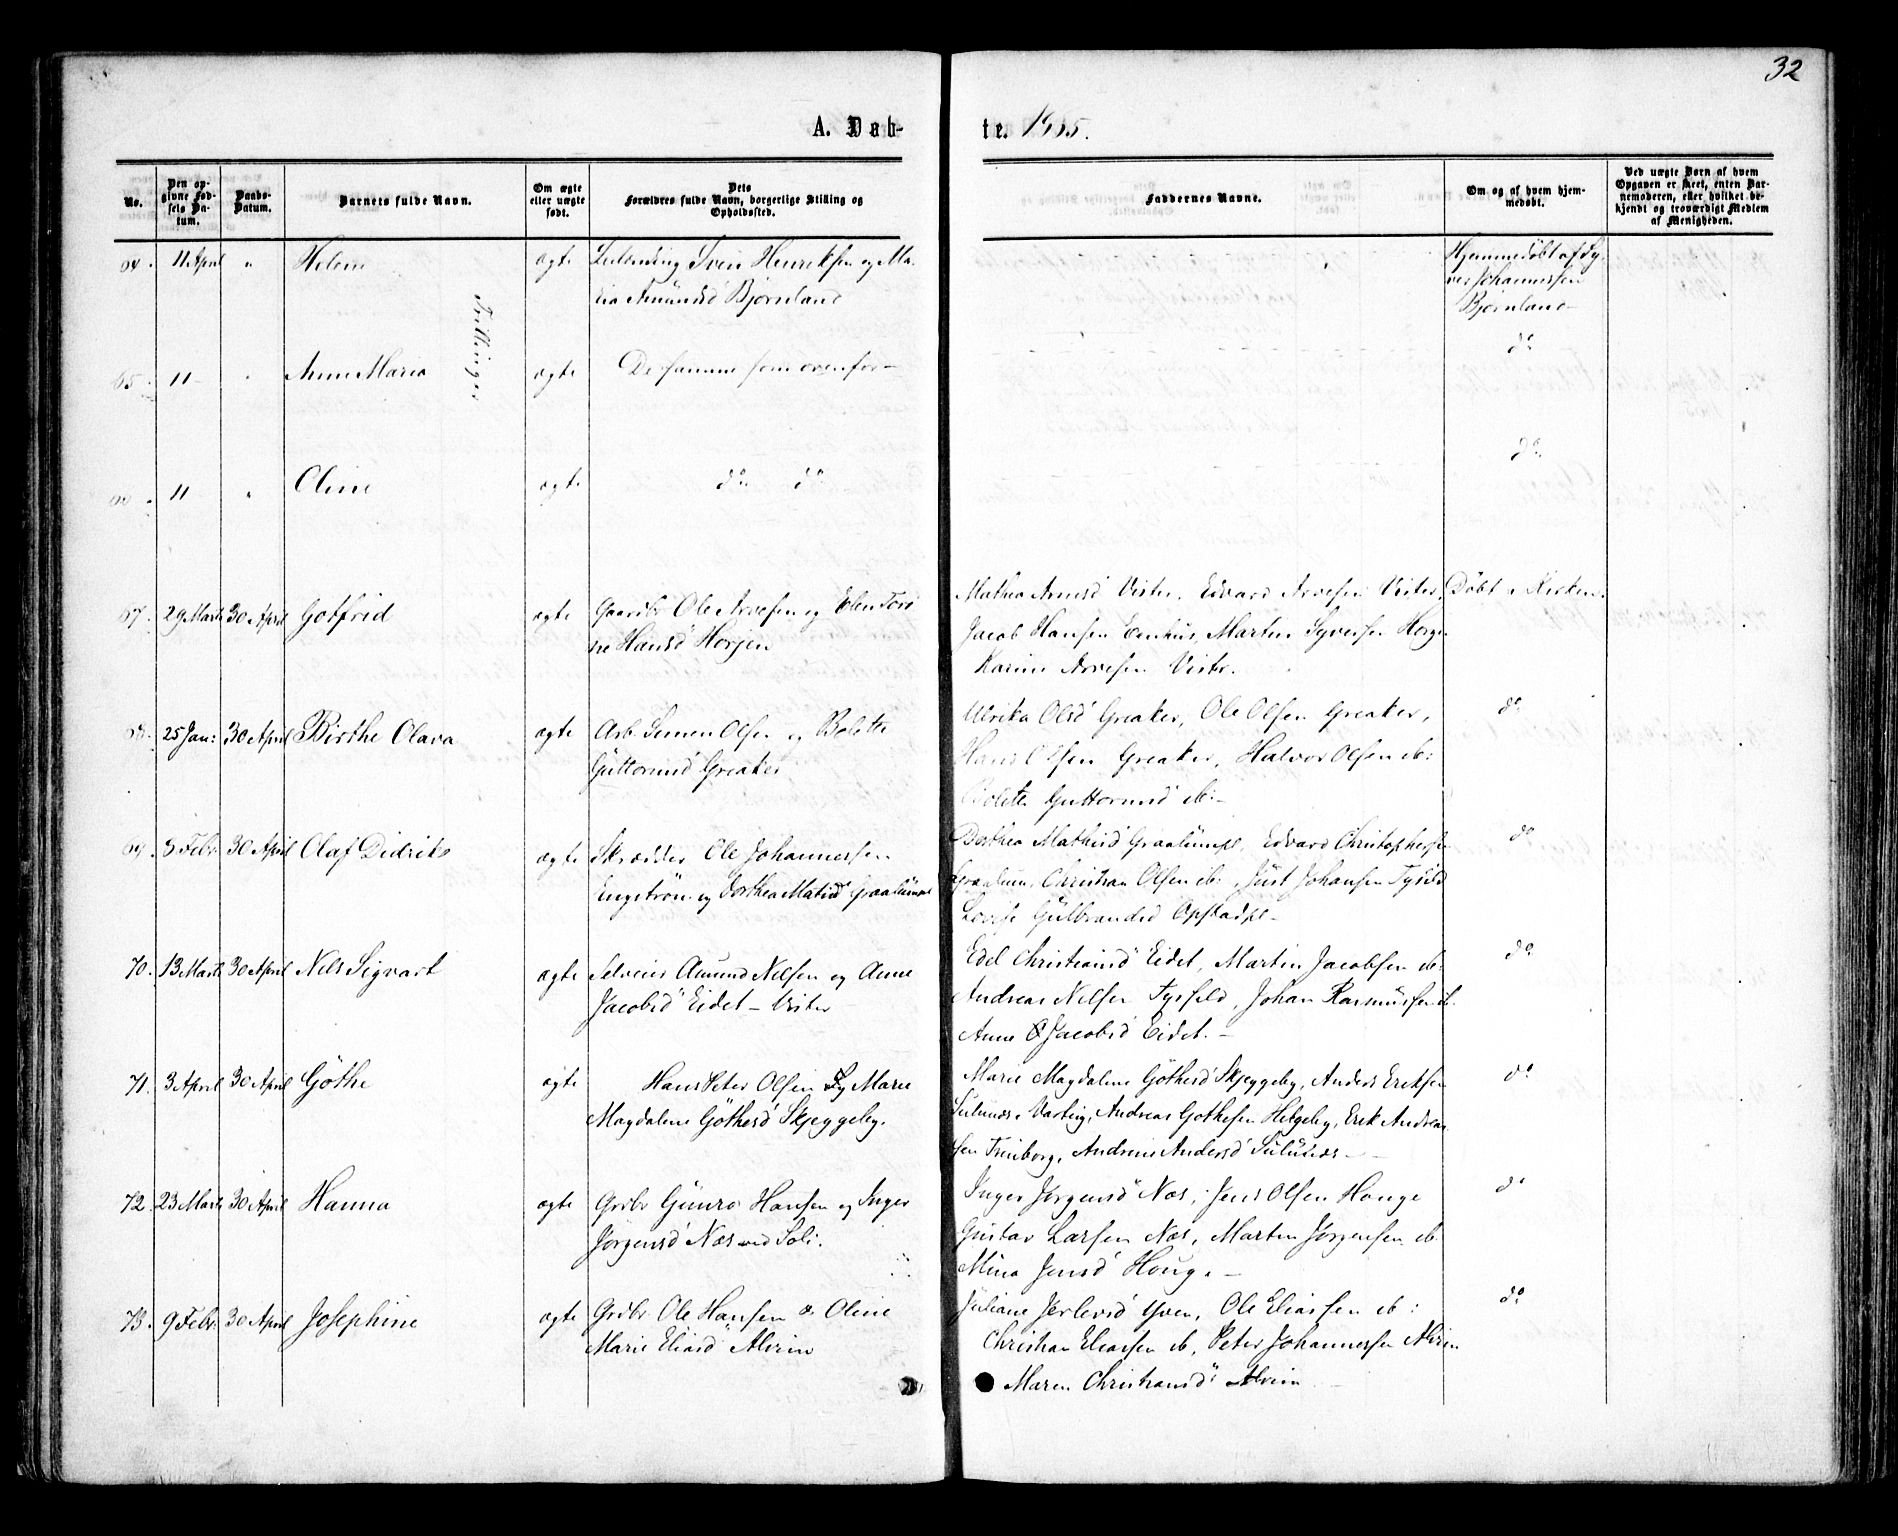 32
A. Døb-
te. 1885.
No.
Den op-
givne Fød-
sels Da-
tum.
Daabs-
Datum.
Barnets fulde Navn.
Om ægte
eller uægte
født.
Dets
Forældres fulde Navn, borgerlige Stilling og
Opholdssted.
Faddernes Navne.
Om og af hvem hjem-
medøbt.
Ved uægte Børn af hvem
Opgaven er skeet, enten Bar-
nemoderen, eller hvilket be-
kjendt og troværdigt Medlem
af Menigheden.
64. 11 April " Helene ægte Sven Henriksen og Ma-
Amundsd Bjørnland
Hjemmedøbt af Sy-
ver Johannessen
Bjørnland
Trillinger
65. 11 - " Anne Maria ægte De samme som ovenfor -
do
11 " Oline ægte do do
do
67. 29 Marts 30 April Gotfrid ægte Gaardbr Ole Arvesen og Elen Tori
ne Hansd Horjen
Mathea Arnesd Vister, Edvard Arvesen Vister,
Jacob Hansen Eenhus, Martin Syversen Horgen
Karine Arvesen Vister.
Døbt i Kirken.
68. 25 Jan: 30 April Birthe Olava ægte Arb. Simen Olsen og Bolette
Guttormsd Greaker
Ulrika Olsd Greaker, Ole Olsen Greaker,
Hans Olsen Greaker, Halvor Olsen ib:
Bolette Guttormsd ib: -
do
69. 3 Febr. 30 April Olaf Didriks ægte Skrædder Ole Johannessen
Engstrøm og Dorthea Matisd Graalum
Dorthea Mathisd Graalumpl, Edvard Christophersen
Graalum, Christian Olsen ib:, Just Johansen Tysfeld
Lovise Gulbrandsd Opstadpl -
do
70. 13 Marts 30 April Nils Sigvart ægte Selveier Amund Nilsen og Anne
Jacobsd Eidet - Vister
Edel Christiansd Eidet, Martin Jacobsen ib.
Andreas Nilsen Tysfeld, Johan Rasmussen ib.
Anne Jacobsd Eidet. -
do
71. 3 April 30 April Gøthe ægte Hans Peter Olsen og Marie
Magdalene Gøthesd Skjeggeby.
Marie Magdalene Gøthesd Skjeggeby, Anders Eriksen
Varteig, Andreas Gothesen Helgeby, Erik Andrea-
sen Andrine Andersd
do
72. 23 Marts 30 April Hanna ægte Grdbr Gunro Hansen og Inger
Jørgensd Næs ved Soli.
Inger Jørgensd Næs, Jens Olsen Houge
Gustav Larsen Næs, Martin Jørgensen ib
Mina Jensd Houge -
do
73. 9 Febr. 30 April Josephine ægte Grdbr Ole Hansen & Oline
Marie Eliasd Alvim
Juliane Jerlevsd Yven, Ole Eliassen ib:
Christian Eliassen ib, Peter Johannessen Alvim
Maren Christiansd Alvim
do